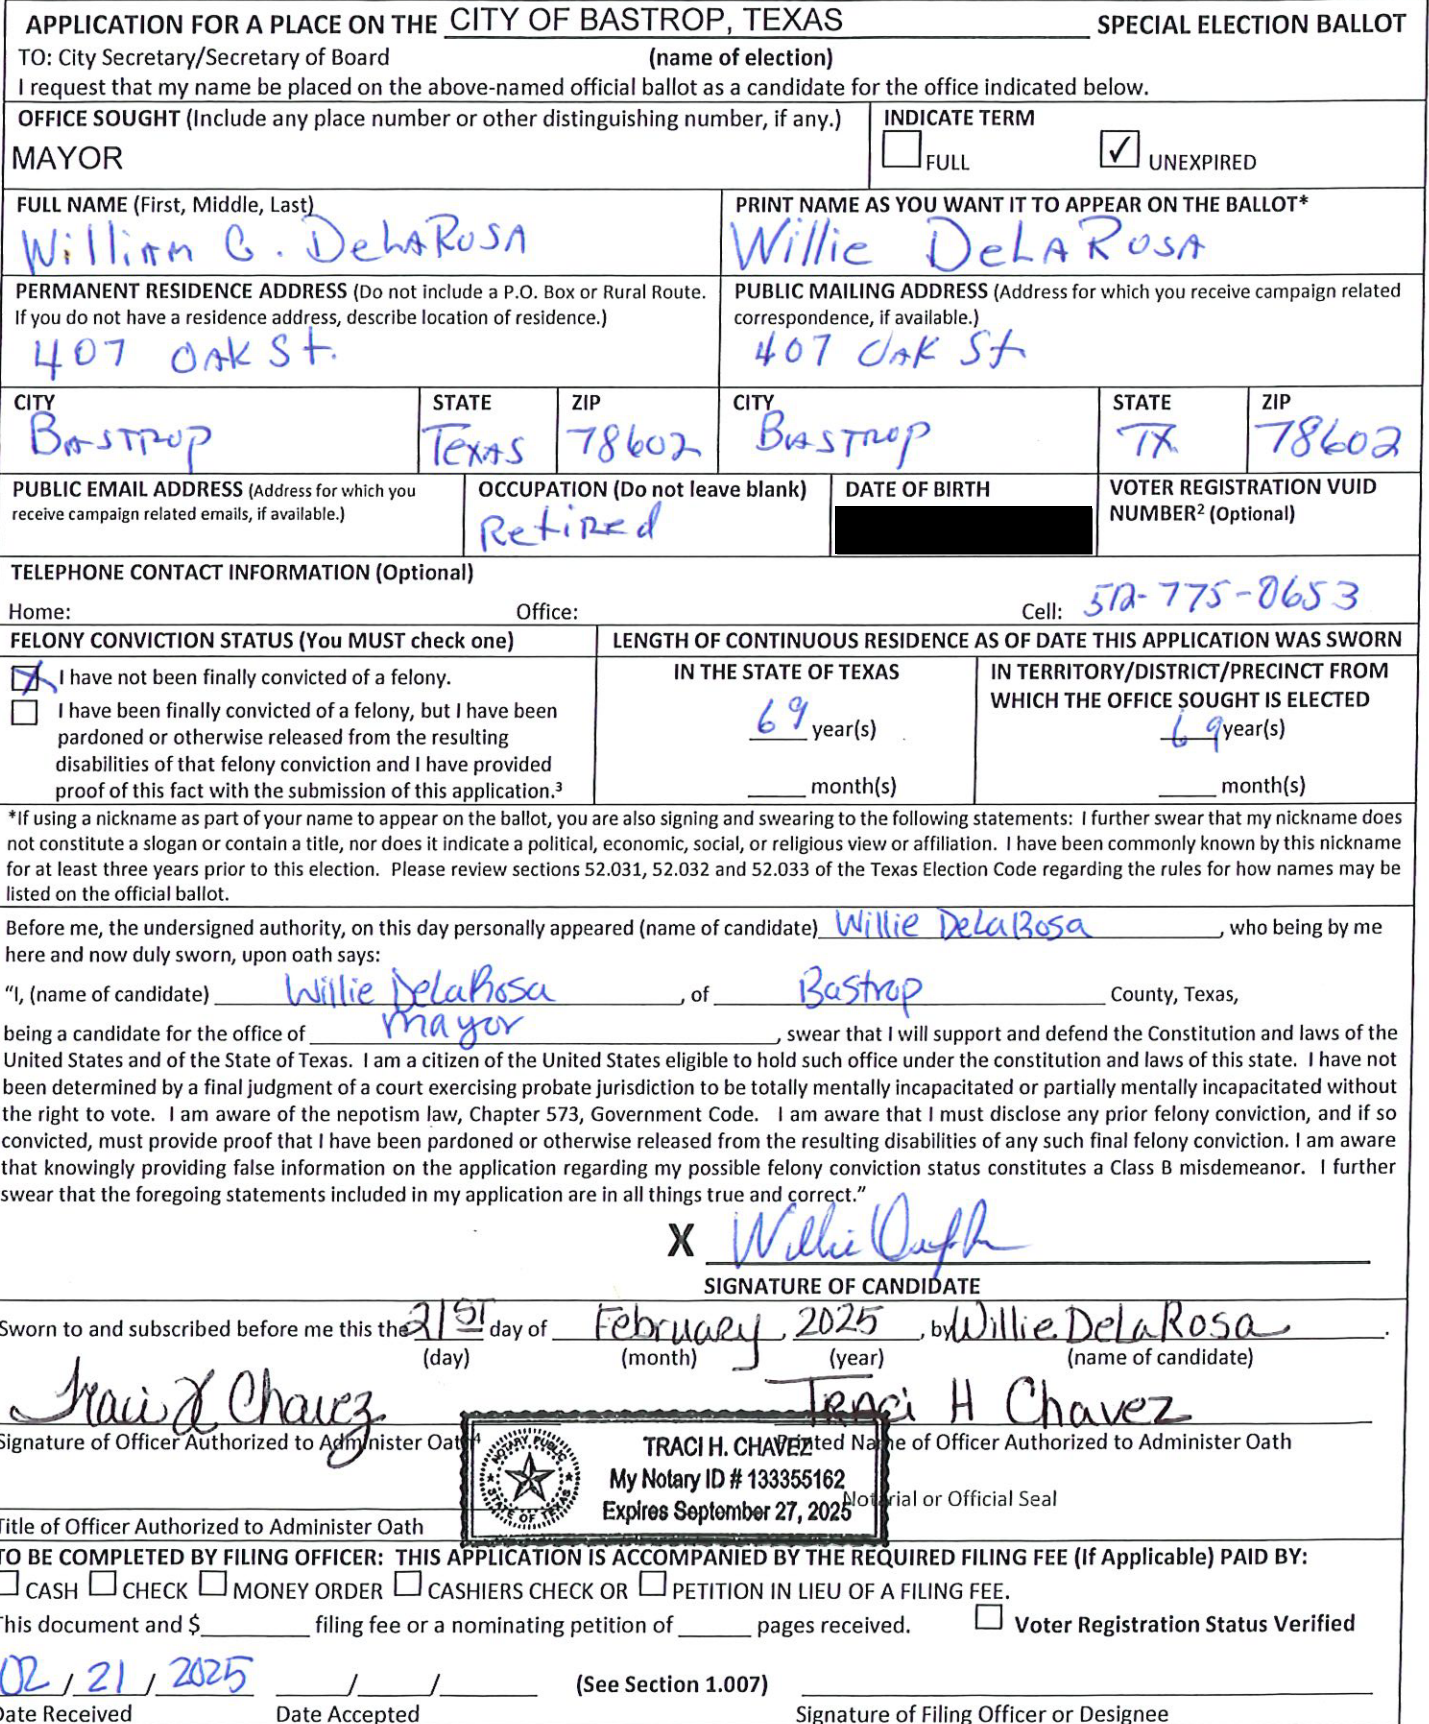 APPLICATION FOR A PLACE ON THE CITY OF BASTROP, TEXAS SPECIAL ELECTION BALLOT
TO: City Secretary/Secretary of Board (name of election)
I request that my name be placed on the above-named official ballot as a candidate for the office indicated below.
OFFICE SOUGHT (Include any place number or other distinguishing number, if any.) INDICATE TERM
MAYOR FULL ✓ UNEXPIRED
FULL NAME (First, Middle, Last) PRINT NAME AS YOU WANT IT TO APPEAR ON THE BALLOT*
William G. DeLaRosa Willie DeLaRosa
PERMANENT RESIDENCE ADDRESS (Do not include a P.O. Box or Rural Route. PUBLIC MAILING ADDRESS (Address for which you receive campaign related
If you do not have a residence address, describe location of residence.) correspondence, if available.)
407 Oak St. 407 Oak St
CITY STATE ZIP CITY STATE ZIP
Bastrop Texas 78602 Bastrop TX 78602
PUBLIC EMAIL ADDRESS (Address for which you OCCUPATION (Do not leave blank) DATE OF BIRTH VOTER REGISTRATION VUID
receive campaign related emails, if available.) Retired NUMBER² (Optional)
TELEPHONE CONTACT INFORMATION (Optional)
Home: Office: Cell: 512-775-0653
FELONY CONVICTION STATUS (You MUST check one) LENGTH OF CONTINUOUS RESIDENCE AS OF DATE THIS APPLICATION WAS SWORN
X I have not been finally convicted of a felony. IN THE STATE OF TEXAS IN TERRITORY/DISTRICT/PRECINCT FROM
I have been finally convicted of a felony, but I have been WHICH THE OFFICE SOUGHT IS ELECTED
pardoned or otherwise released from the resulting 69 year(s) 69 year(s)
disabilities of that felony conviction and I have provided
proof of this fact with the submission of this application.³ month(s) month(s)
*If using a nickname as part of your name to appear on the ballot, you are also signing and swearing to the following statements: I further swear that my nickname does
not constitute a slogan or contain a title, nor does it indicate a political, economic, social, or religious view or affiliation. I have been commonly known by this nickname
for at least three years prior to this election. Please review sections 52.031, 52.032 and 52.033 of the Texas Election Code regarding the rules for how names may be
listed on the official ballot.
Before me, the undersigned authority, on this day personally appeared (name of candidate) Willie DeLaRosa, who being by me
here and now duly sworn, upon oath says:
"I, (name of candidate) Willie DeLaRosa, of Bastrop County, Texas,
being a candidate for the office of Mayor, swear that I will support and defend the Constitution and laws of the
United States and of the State of Texas. I am a citizen of the United States eligible to hold such office under the constitution and laws of this state. I have not
been determined by a final judgment of a court exercising probate jurisdiction to be totally mentally incapacitated or partially mentally incapacitated without
the right to vote. I am aware of the nepotism law, Chapter 573, Government Code. I am aware that I must disclose any prior felony conviction, and if so
convicted, must provide proof that I have been pardoned or otherwise released from the resulting disabilities of any such final felony conviction. I am aware
that knowingly providing false information on the application regarding my possible felony conviction status constitutes a Class B misdemeanor. I further
swear that the foregoing statements included in my application are in all things true and correct."
X Willie
SIGNATURE OF CANDIDATE
Sworn to and subscribed before me this the 21st day of February, 2025, by Willie DeLaRosa.
(day) (month) (year) (name of candidate)
Traci H Chavez Traci H Chavez
Signature of Officer Authorized to Administer Oath⁴ Printed Name of Officer Authorized to Administer Oath
NOTARY PUBLIC STATE OF TEXAS
TRACI H. CHAVEZ
My Notary ID # 133355162
Expires September 27, 2025
Notarial or Official Seal
Title of Officer Authorized to Administer Oath
TO BE COMPLETED BY FILING OFFICER: THIS APPLICATION IS ACCOMPANIED BY THE REQUIRED FILING FEE (If Applicable) PAID BY:
CASH CHECK MONEY ORDER CASHIERS CHECK OR PETITION IN LIEU OF A FILING FEE.
This document and $ filing fee or a nominating petition of pages received. Voter Registration Status Verified
02 / 21 / 2025 / / (See Section 1.007)
Date Received Date Accepted Signature of Filing Officer or Designee